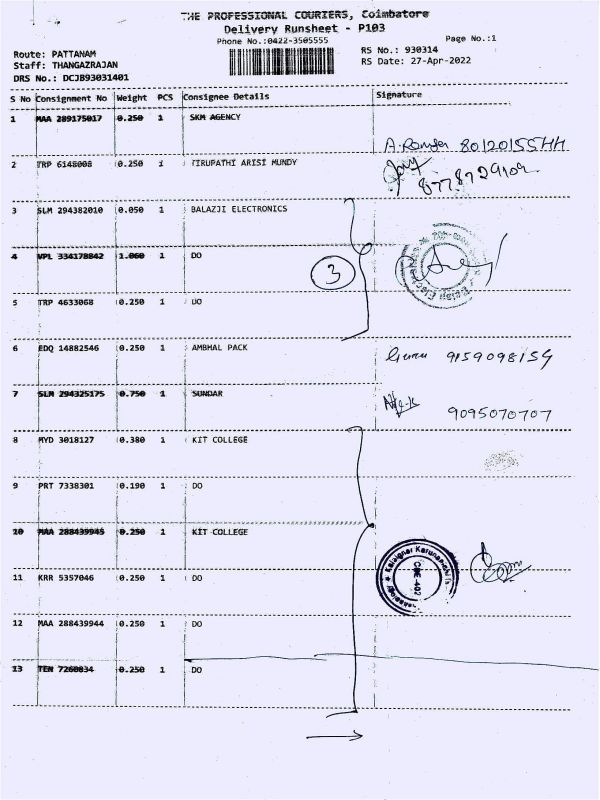 THE PROFESSIONAL COURIERS, Coimbatore
Delivery Runsheet - P103
Phone No.:0422-3505555
Page No.:1
Route: PATTANAM
RS No.: 930314
Staff: THANGAZRAJAN
RS Date: 27-Apr-2022
DRS No.: DCJB93031401
S No Consignment No Weight PCS Consignee Details Signature
1 MAA 289175017 0.250 1 SKM AGENCY
80120155HH
2 TRP 6148008 0.250 1 TIRUPATHI ARISI MUNDY
8778729102
3 SLM 294382010 0.050 1 BALAZJI ELECTRONICS
4 VPL 334178842 1.060 1 DO
3
5 TRP 4633068 0.250 1 DO
6 EDQ 14882546 0.250 1 AMBHAL PACK
9159098159
7 SLM 294325175 0.750 1 SUNDAR
9095070707
8 MYD 3018127 0.380 1 KIT COLLEGE
9 PRT 7338301 0.190 1 DO
10 MAA 288439945 0.250 1 KIT COLLEGE
Kalaignar Karunanidhi
CBE-402
11 KRR 5357046 0.250 1 DO
12 MAA 288439944 0.250 1 DO
13 TEN 7260034 0.250 1 DO